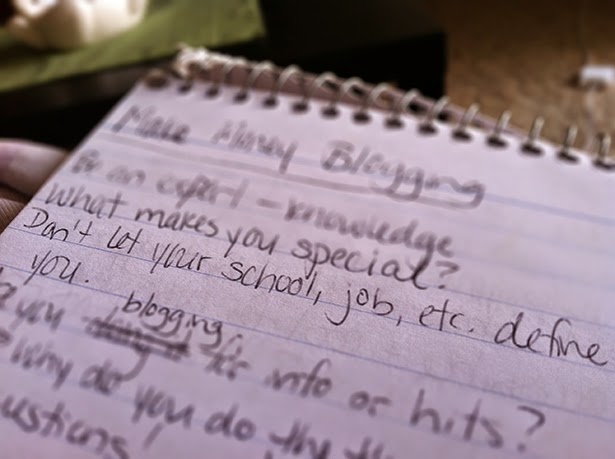 Make Money Blogging
Be an expert - knowledge
What makes you special?
Don't let your school, job, etc. define
you.
you blogging for info or hits?
Why do you do the